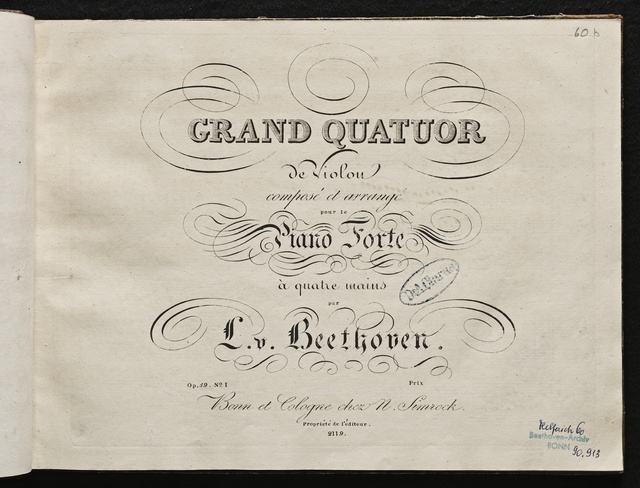 60 b
GRAND QUATUOR
de Violon
composé et arrangé
pour le
Piano Forte
à quatre mains
par
L. v. Beethoven.
Op. 59. No. I
Prix
Bonn et Cologne chez N. Simrock.
Propriété de l'éditeur.
2119.
60
Beethoven-Archiv
BONN
90,913